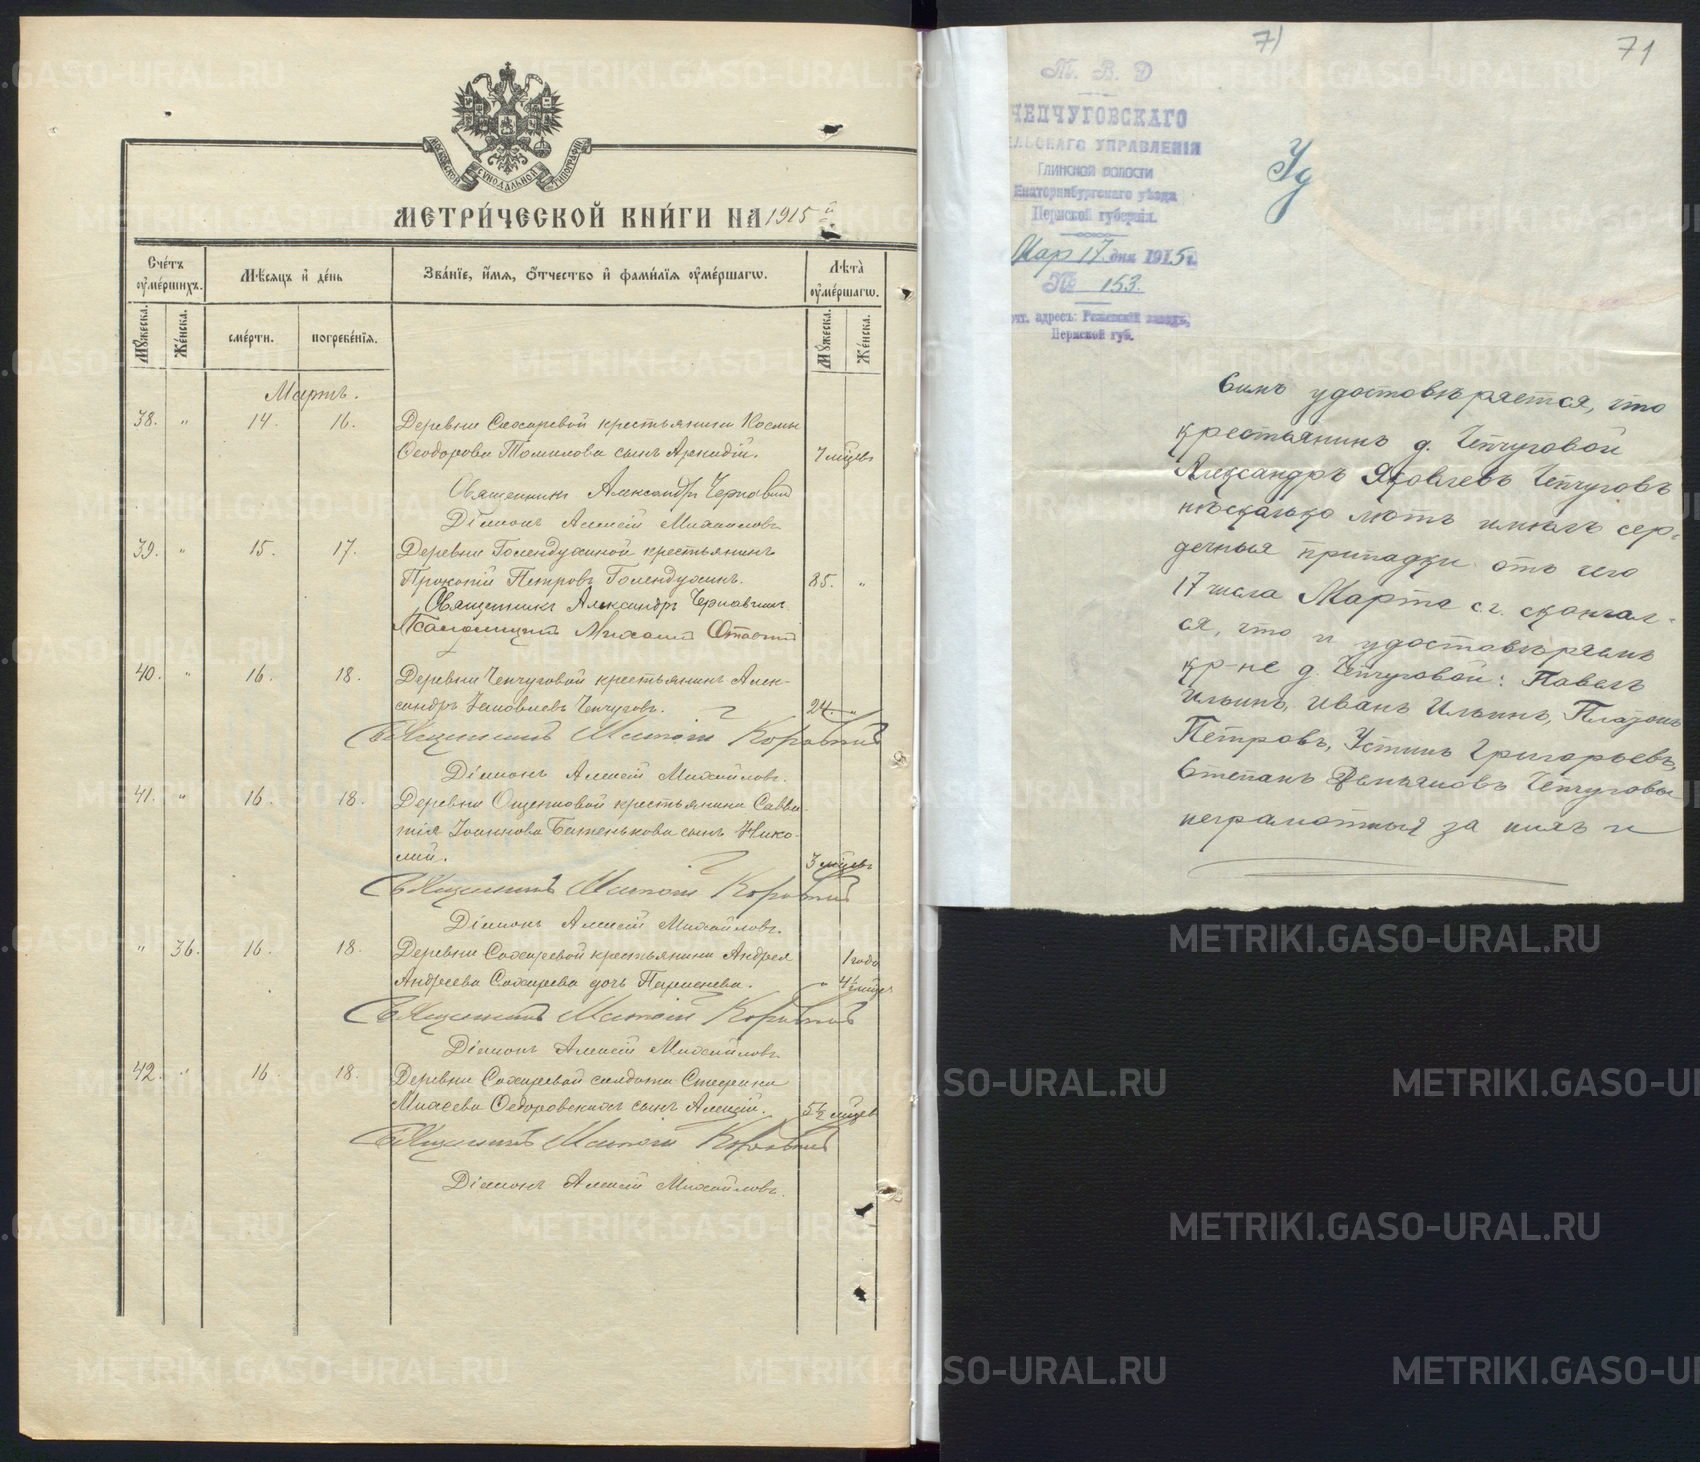 МОСКОВСКОЙ СѴНОДАЛЬНОЙ ТИПОГРАФІИ
МЕТРИ́ЧЕСКОЙ КНИ́ГИ НА 1915 й
Сче́тъ ᲂумéршихъ.
Мѣ́сяцъ и҆ де́нь
Зва́нїе, и҆́мѧ, ѻ҆́тчество и҆ фами́лїѧ ᲂу҆ме́ршагѡ.
Лѣ́та ᲂу҆ме́ршагѡ.
Мꙋ́жеска.
Же́нска.
сме́рти.
погребе́нїѧ.
Мꙋ́жеска.
Же́нска.
Мартъ.
38. " 14. 16. Деревни Сохаревой крестьянина Космы
Ѳеодорова Томилова сынъ Аркадій. 7 мѣцевъ
Священникъ Александръ Чернавин
Діаконъ Алексій Михайловъ
39. " 15. 17. Деревни Голендухиной крестьянинъ
Прокопій Петровъ Голендухинъ. 85. "
Священникъ Александръ Чернавинъ.
Псаломщикъ Михаилъ
40. " 16. 18. Деревни Чепчуговой крестьянинъ Алек-
сандръ Іаковлевъ Чепчуговъ. 24. "
Священникъ Коровинъ
Діаконъ Алексій Михайловъ.
41. " 16. 18. Деревни Ощепковой крестьянина Савва-
тія Іоаннова Батенькова сынъ Нико-
лай. 3 мѣцевъ
Священникъ Коровинъ
Діаконъ Алексій Михайловъ.
" 36. 16. 18. Деревни Сохаревой крестьянина Андрея 1 года
Андреева Сохарева дочь Параскева. " 4½ мѣцъ
Священникъ Коровинъ
Діаконъ Алексій Михайловъ
42. " 16. 18. Деревни Сохаревой солдата Стефана
Ѳедоровскихъ сынъ Алексій. 5½ мѣцев
Священникъ Коровинъ
Діаконъ Алексій Михайловъ.
71
71
М. В. Д
ЧЕПЧУГОВСКАГО
ЕЛЬСКАГО УПРАВЛЕНІЯ
ГЛИНСКОЙ ВОЛОСТИ
Екатеринбургскаго уѣзда
Пермской губерніи.
Мар 17 дня 1915 г.
№ 153.
очт. адресъ: Режевскій заводъ,
Пермской губ.
Уд
Симъ удостовѣряется, что
крестьянинъ д. Чепчуговой
Александръ Яковлевъ Чепчуговъ
нѣсколько лѣтъ имѣлъ сер-
дечныя припадки отъ чего
17 числа Марта с.г. скончал-
ся, что и удостовѣряемъ
кр-не д. Чепчуговой: Павелъ
Ильинъ, Иванъ Ильинъ, Платонъ
Петровъ, Устинъ Григорьевъ,
Степанъ Демьяновъ Чепчуговы
неграмотныя за нихъ и
METRIKI.GASO-URAL.RU